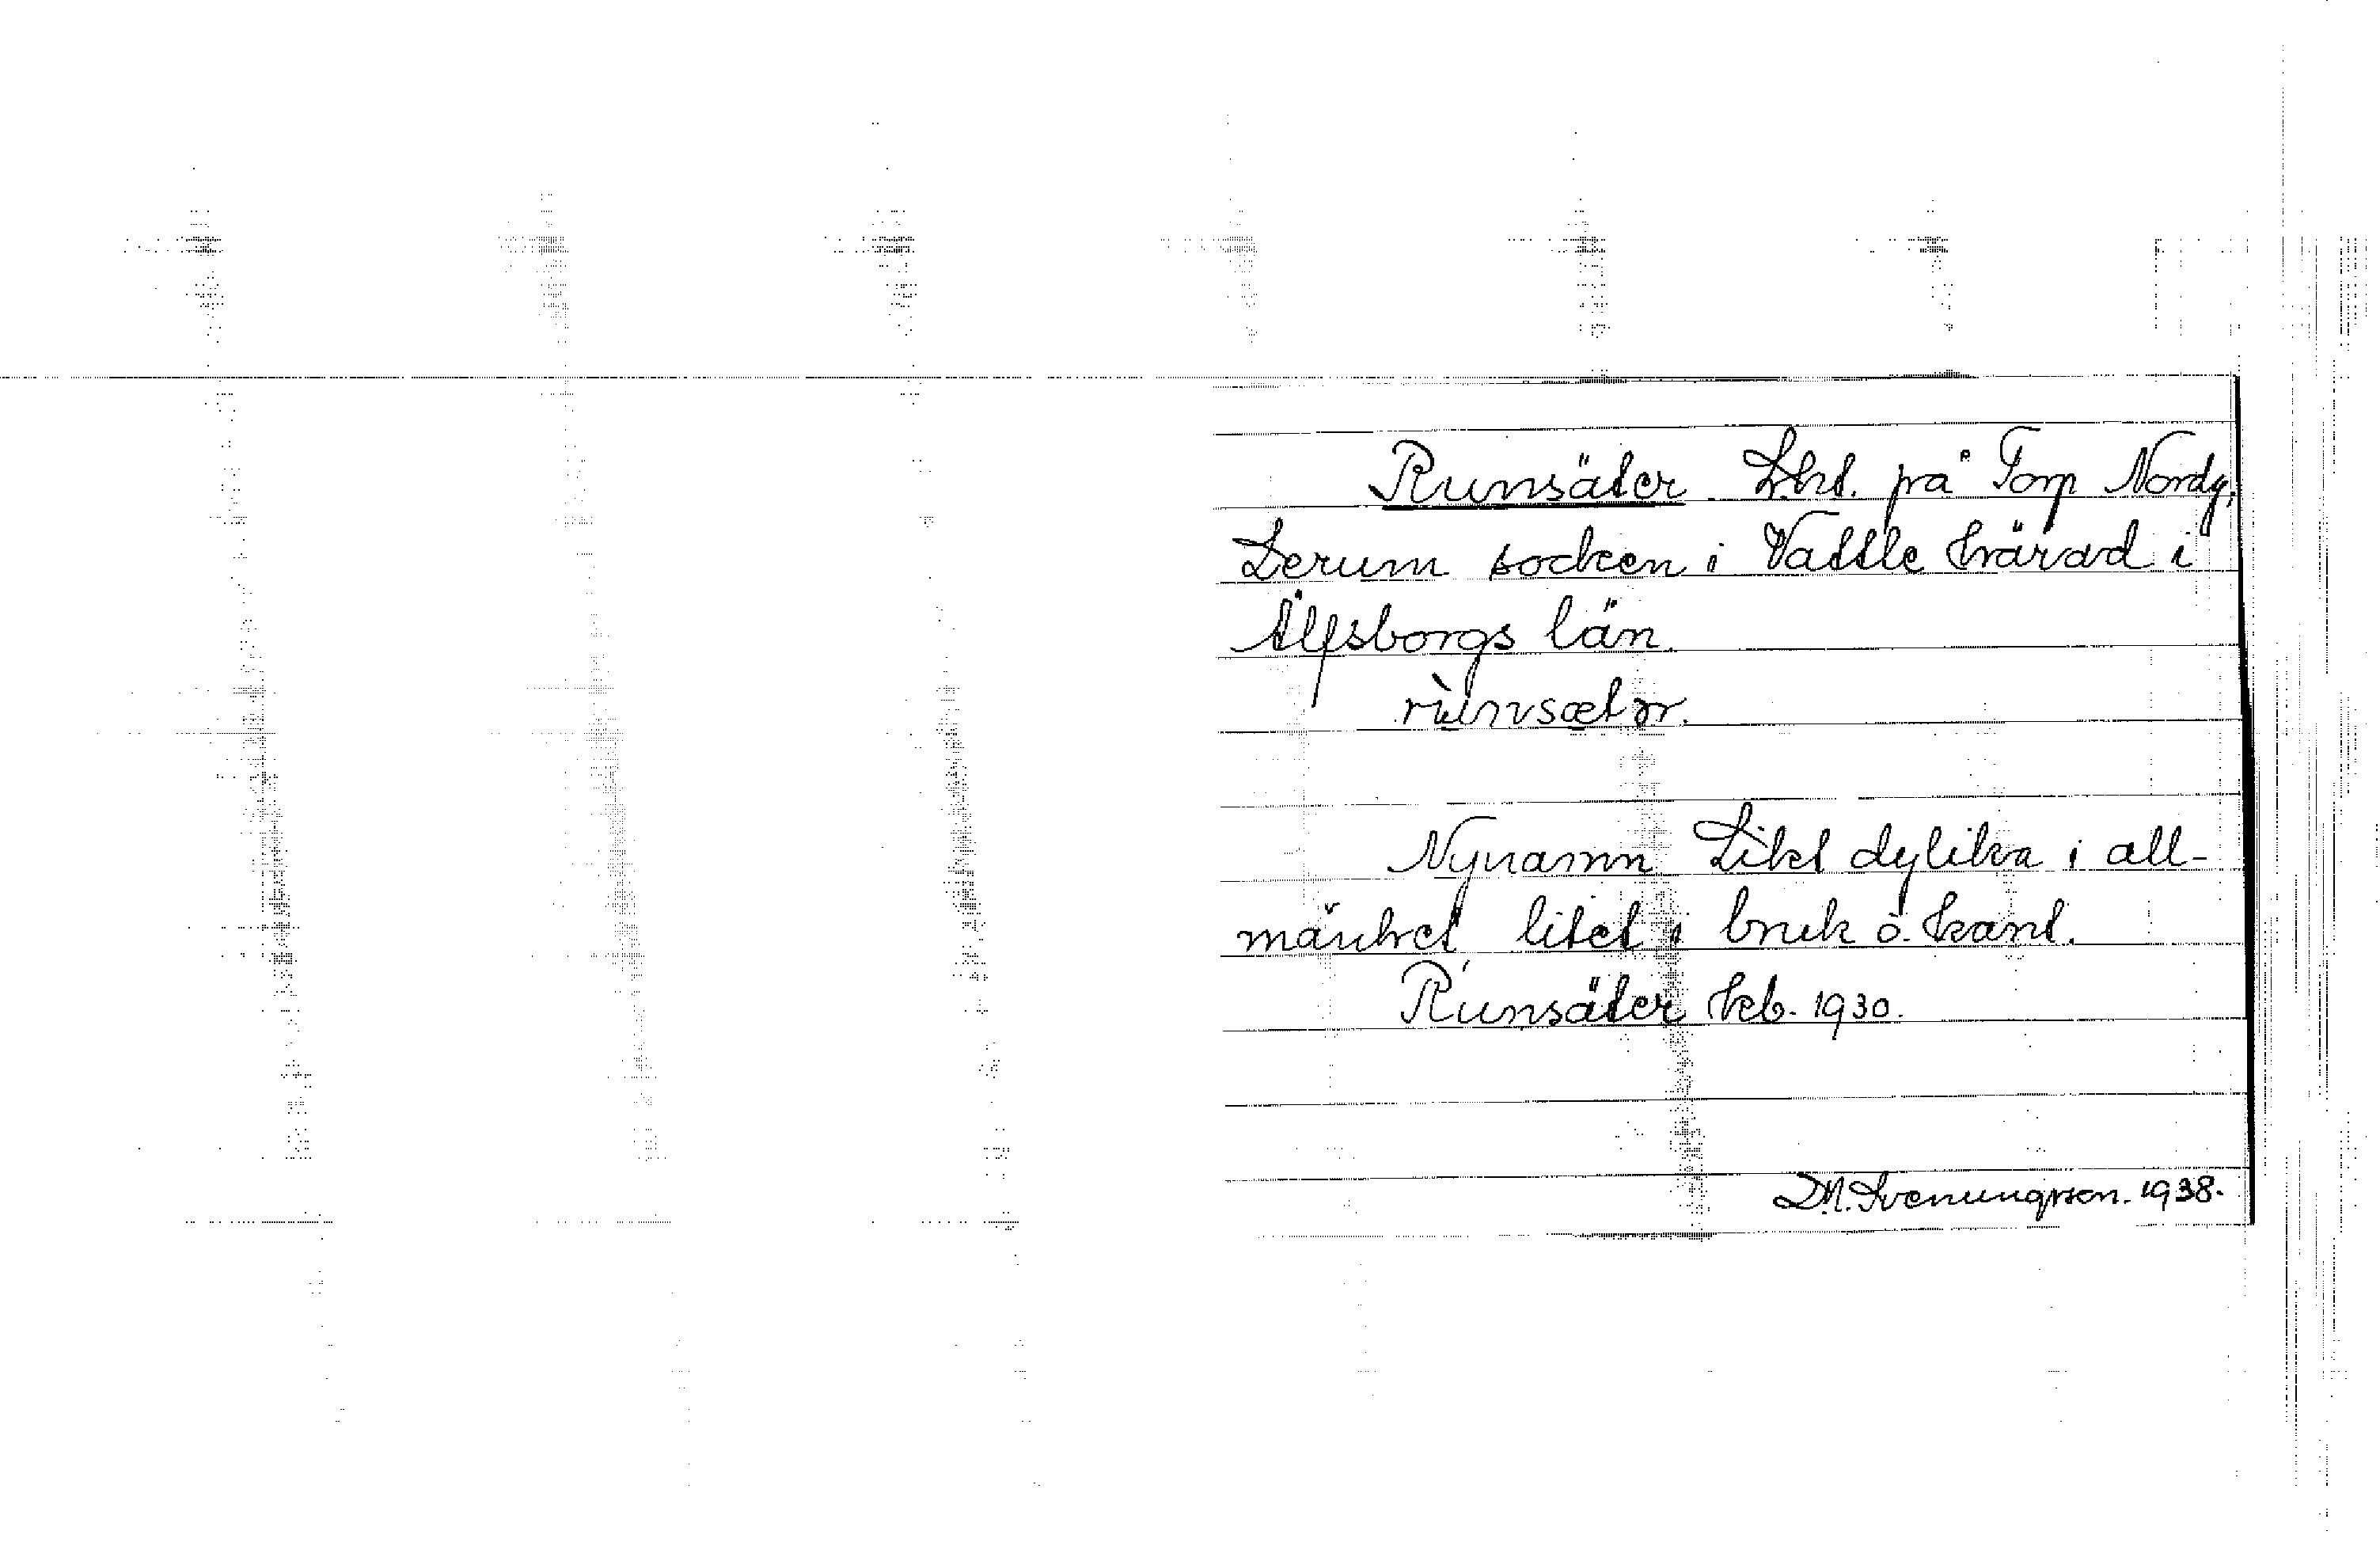 Runsäter. Lht. på Torp Nordg.
Lerum socken i Vättle härad i
Älfsborgs län.
rùnsætər.
Nynamn. Likt dylika i all-
mänhet litet i bruk o. känt.
Runsäter kb. 1930.
D.N. Svenungsson. 1938.